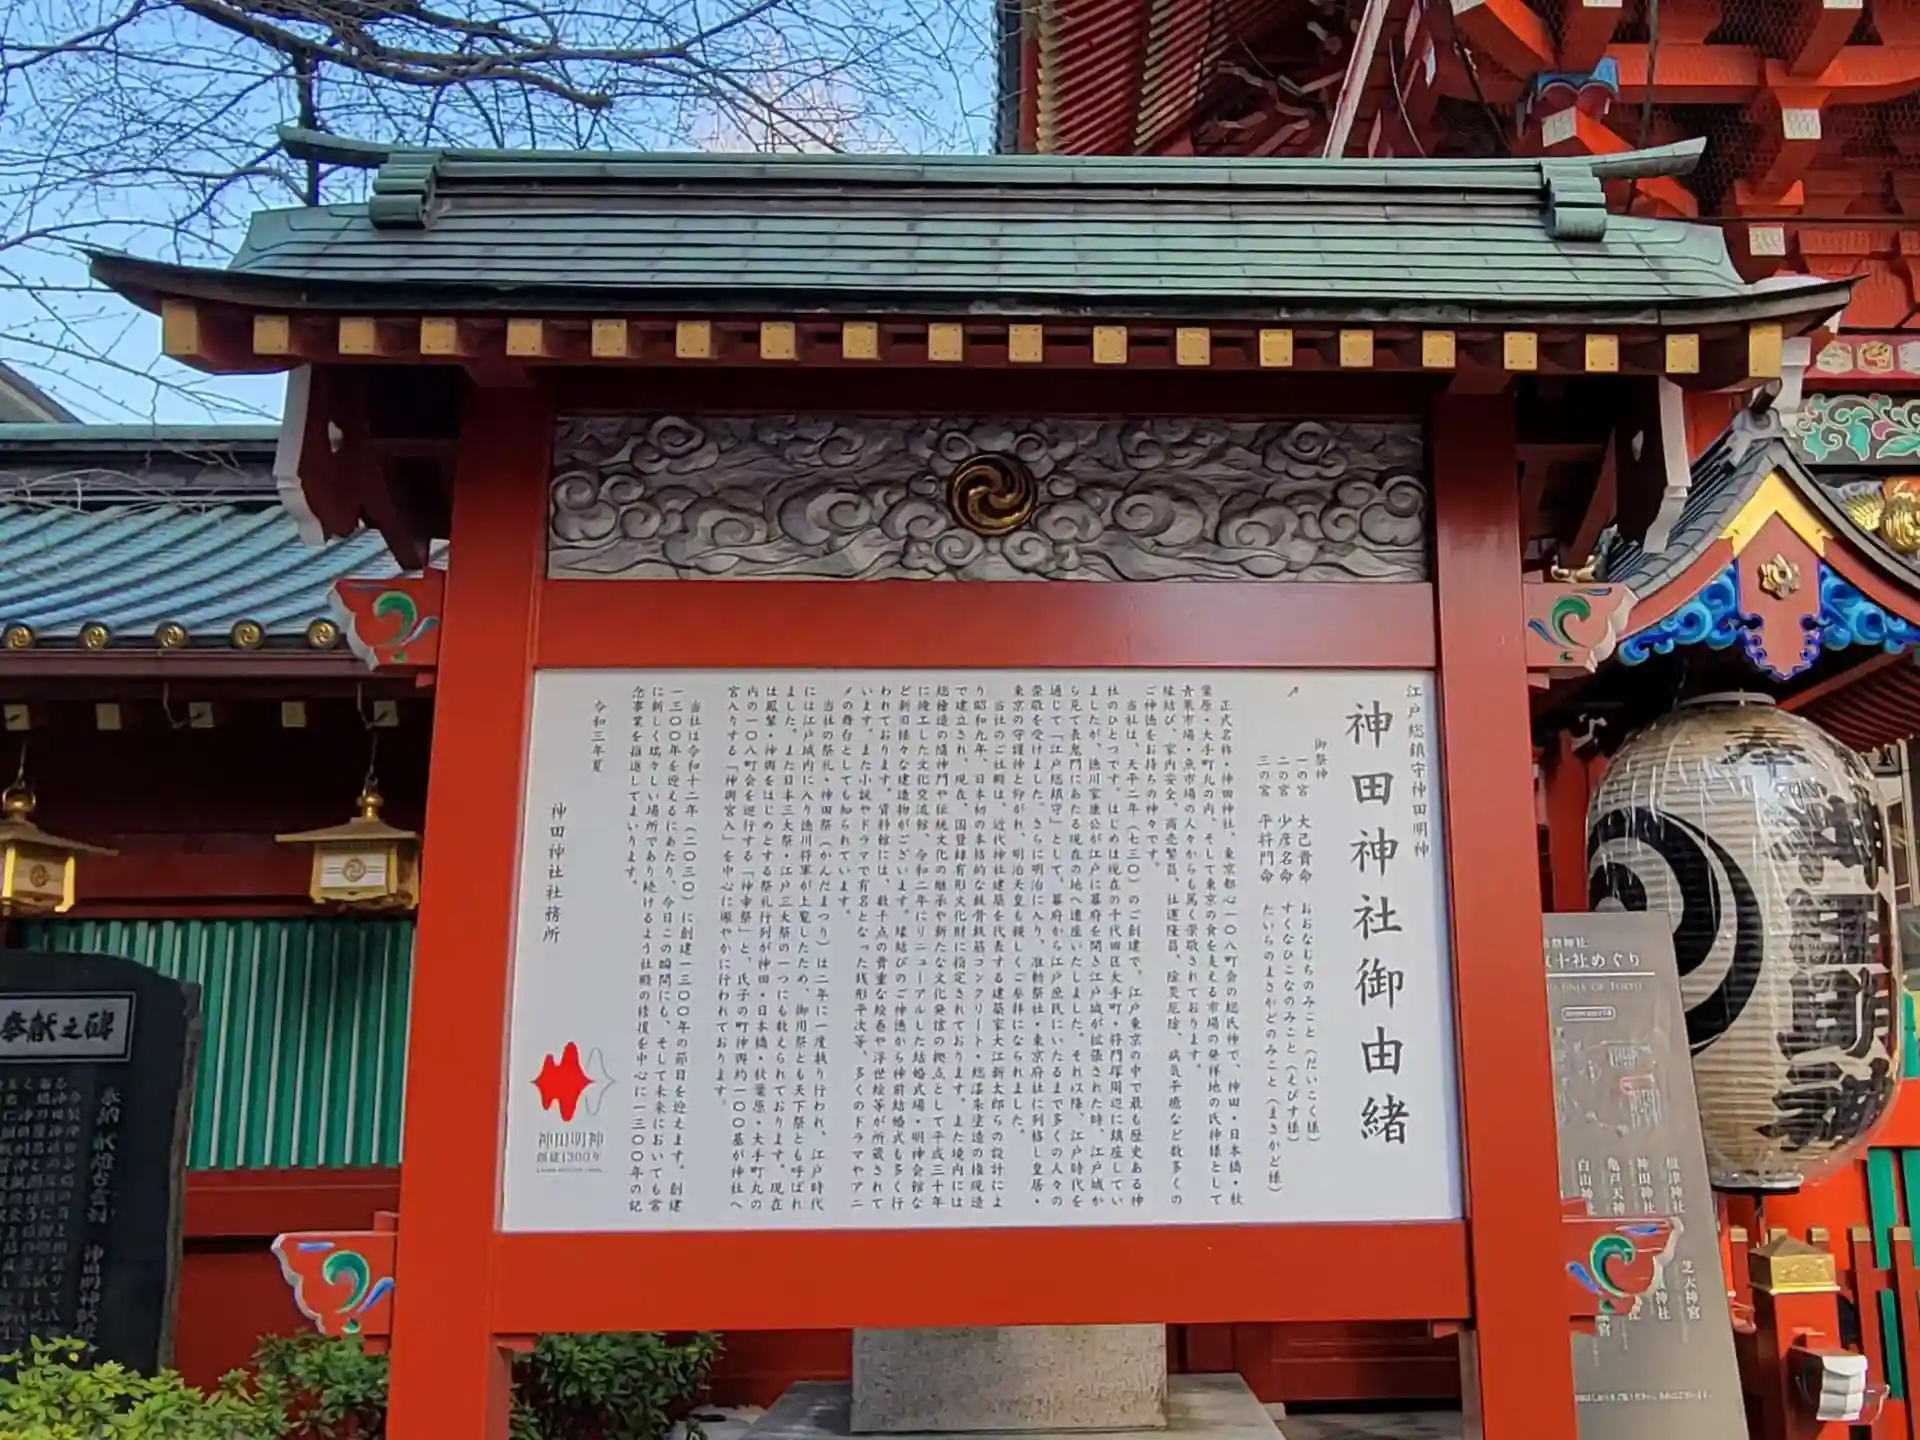 江戸総鎮守神田明神
神田神社御由緒
御祭神
一の宮　大己貴命　おおなむちのみこと（だいこく様）
二の宮　少彦名命　すくなひこなのみこと（えびす様）
三の宮　平将門命　たいらのまさかどのみこと（まさかど様）
正式名称・神田神社。東京都心一〇八町会の総氏神で、神田・日本橋・秋
葉原・大手町丸の内、そして東京の食を支える市場の発祥地の氏神様として
青果市場・魚市場の人々からも篤く崇敬されております。
縁結び、家内安全、商売繁昌、社運隆昌、除災厄除、病気平癒など数多くの
ご神徳をお持ちの神々です。
当社は、天平二年（七三〇）のご創建で、江戸東京の中で最も歴史ある神
社のひとつです。はじめは現在の千代田区大手町・将門塚周辺に鎮座してい
ましたが、徳川家康公が江戸に幕府を開き江戸城が拡張された時、江戸城か
ら見て表鬼門にあたる現在の地へ遷座いたしました。それ以降、江戸時代を
通じて「江戸総鎮守」として、幕府から江戸庶民にいたるまで多くの人々の
崇敬を受けました。さらに明治に入り、准勅祭社・東京府社に列格し皇居・
東京の守護神と仰がれ、明治天皇も親しくご参拝になられました。
当社のご社殿は、近代神社建築を代表する建築家大江新太郎らの設計によ
り昭和九年、日本初の本格的な鉄骨鉄筋コンクリート・総漆朱塗造の権現造
で建立され、現在、国登録有形文化財に指定されております。また境内には
総檜造の隨神門や伝統文化の継承や新たな文化発信の拠点として平成三十年
に竣工した文化交流館、令和二年にリニューアルした結婚式場・明神会館な
ど新旧様々な建造物がございます。縁結びのご神徳から神前結婚式も多く行
われております。資料館には、数千点の貴重な絵巻や浮世絵等が所蔵されて
います。また小説やドラマで有名となった銭形平次等、多くのドラマやアニ
メの舞台としても知られています。
当社の祭礼・神田祭（かんだまつり）は二年に一度執り行われ、江戸時代
には江戸城内に入り徳川将軍が上覧したため、御用祭とも天下祭とも呼ばれ
ました。また日本三大祭・江戸三大祭の一つにも数えられております。現在
は鳳輦・神輿をはじめとする祭礼行列が神田・日本橋・秋葉原・大手町丸の
内の一〇八町会を巡行する「神幸祭」と、氏子の町神輿約一〇〇基が神社へ
宮入りする「神輿宮入」を中心に賑やかに行われております。
当社は令和十二年（二〇三〇）に創建一三〇〇年の節目を迎えます。創建
一三〇〇年を迎えるにあたり、今日この瞬間にも、そして未来においても常
に新しく瑞々しい場所であり続けるよう社殿の修復を中心に一三〇〇年の記
念事業を推進してまいります。
令和三年夏
神田神社社務所
神田明神
創建1300年
奉献之碑
十社めぐり
根津神社
神田神社
亀戸天神
白山神社
芝大神宮